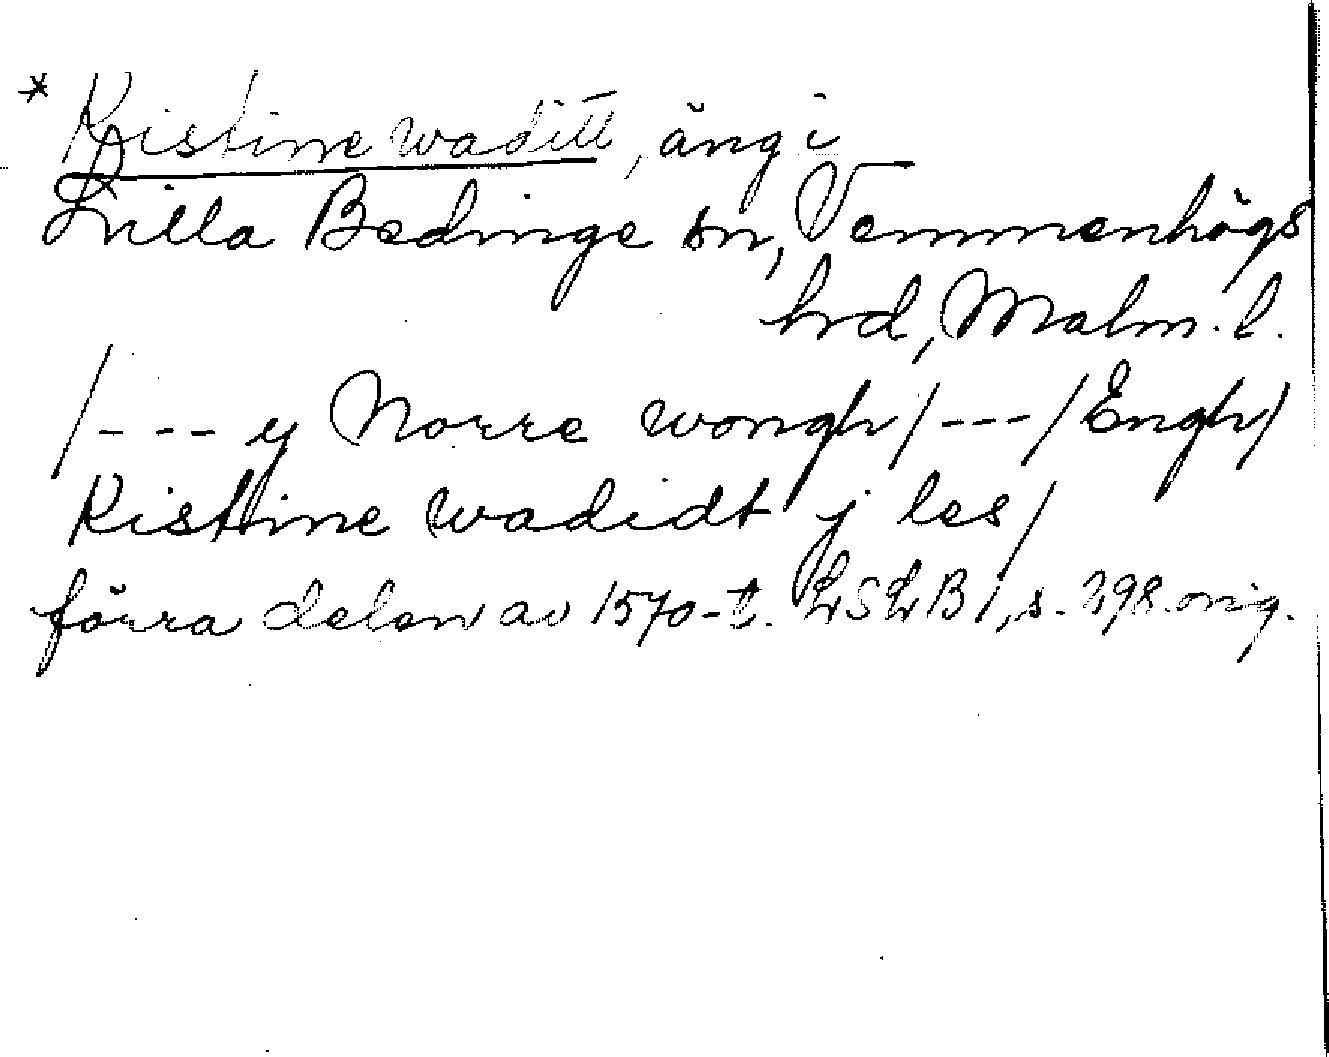 * Kistine waditt, äng i
Lilla Bedinge sn, Vemmenhögs
hrd, Malm. l.
/--- y Norre wongh/---/Engh/
Kistine wadidt j les/
förra delen av 1570-t. LSLB 1, s. 298 orig.